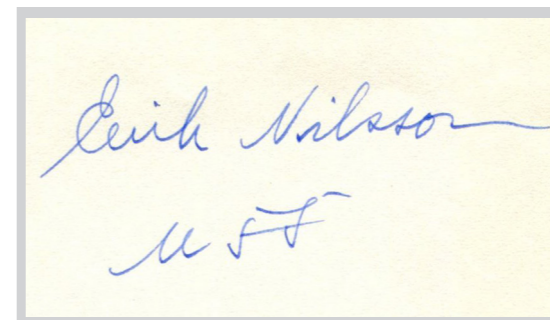 Erik Nilsson
MFF